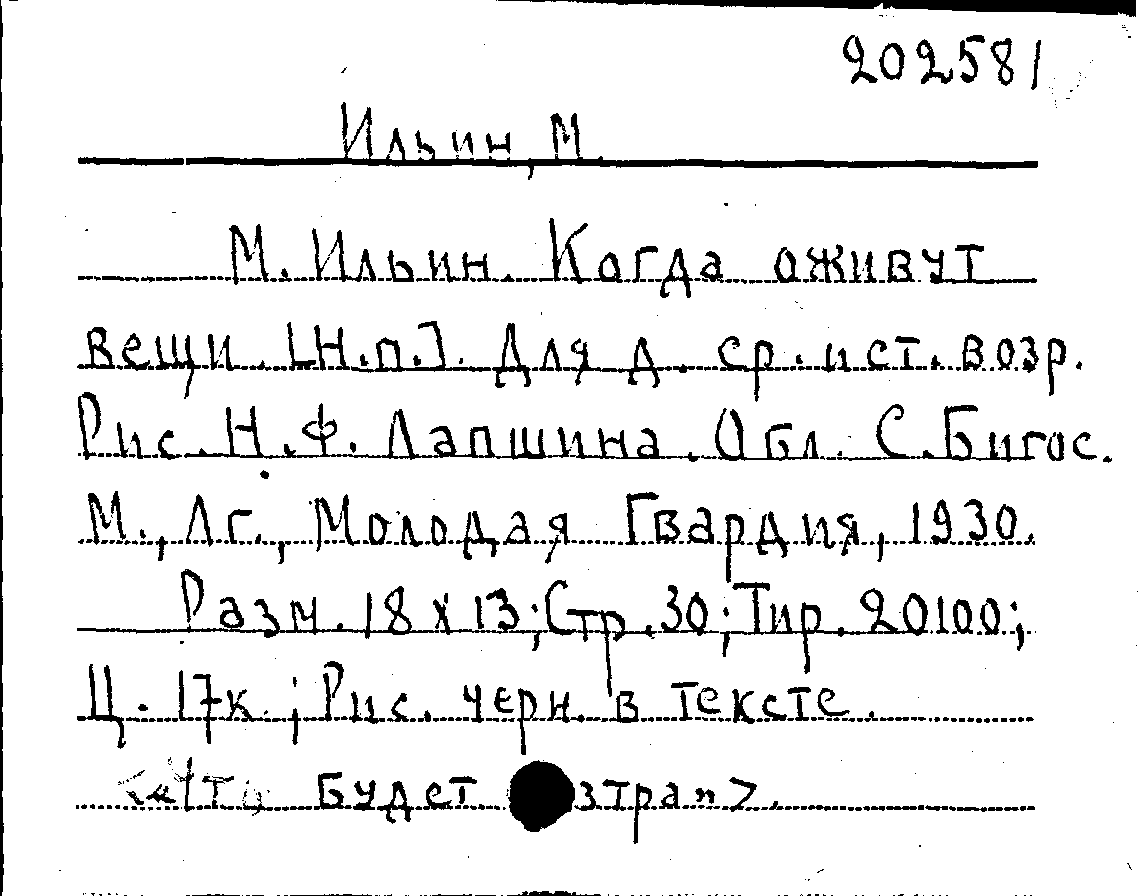 202581
Ильин, М.
М. Ильин. Когда оживут
вещи. [Н.п.]. Для д. ср. и ст. возр.
Рис. Н.Ф. Лапшина. Обл. С. Бигос.
М., Лг., Молодая Гвардия, 1930.
Разм. 18 х 13; Стр. 30; Тир. 20100;
Ц. 17к.; Рис. черн. в тексте.
будет